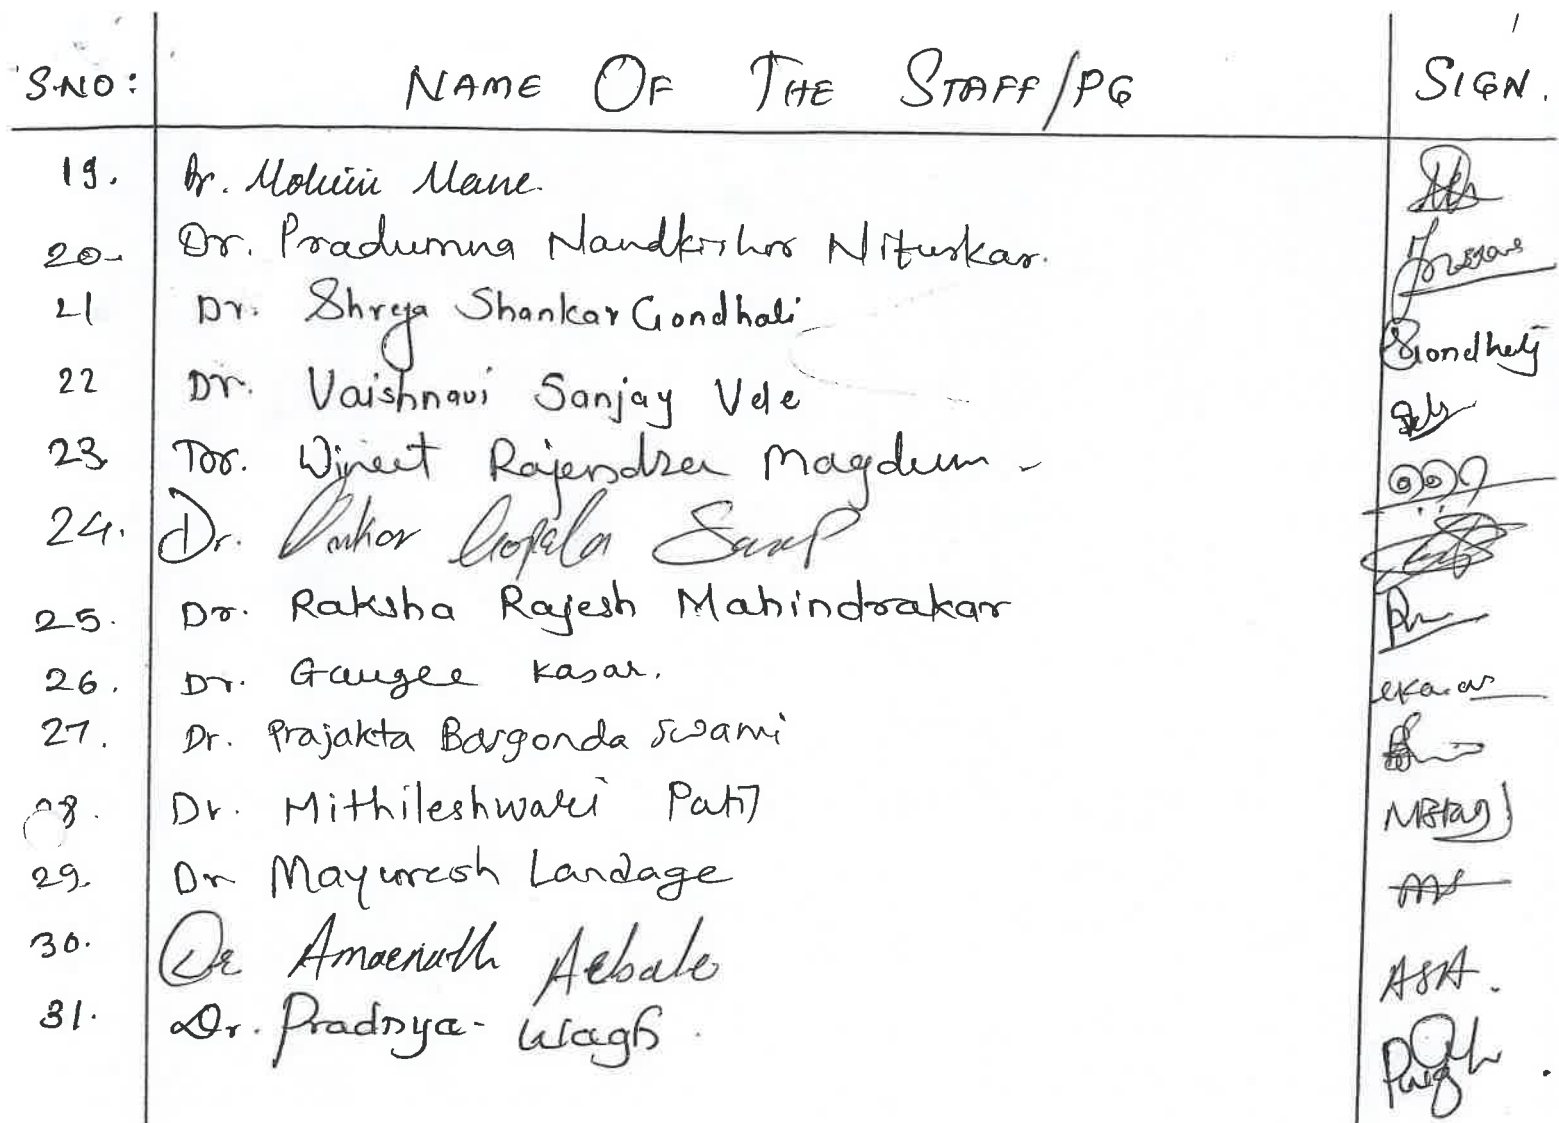 S.NO: NAME OF THE STAFF/PG SIGN.
19. Dr. Mohini Mane.
20. Dr. Pradumna Nandkishor Nituskar.
21 Dr. Shreya Shankar Gondhali Gondhali
22 Dr. Vaishnavi Sanjay Vele
23. Dr. Vineet Rajendra Magdum
24. Dr. Gopala
25. Dr. Raksha Rajesh Mahindrakar
26. Dr. Gaugee Kasar.
27. Dr. Prajakta Bargonda Swami
Dr. Mithileshwari Patil
29. Dr Mayuresh Landage
30. Dr Amarnath Arbale ASA.
31. Dr. Pradnya Wagh.